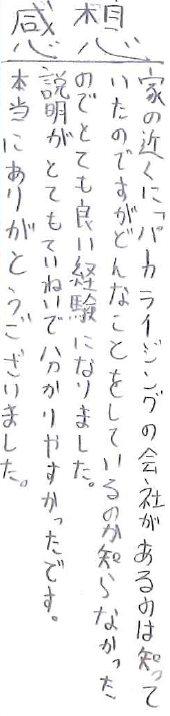 感想
家の近くに「パーカライジングの会社があるのは知って
いたのですがどんなことをしているのか知らなかった
のでとても良い経験になりました。
説明がとてもていねいで分かりやすかったです。
本当にありがとうございました。